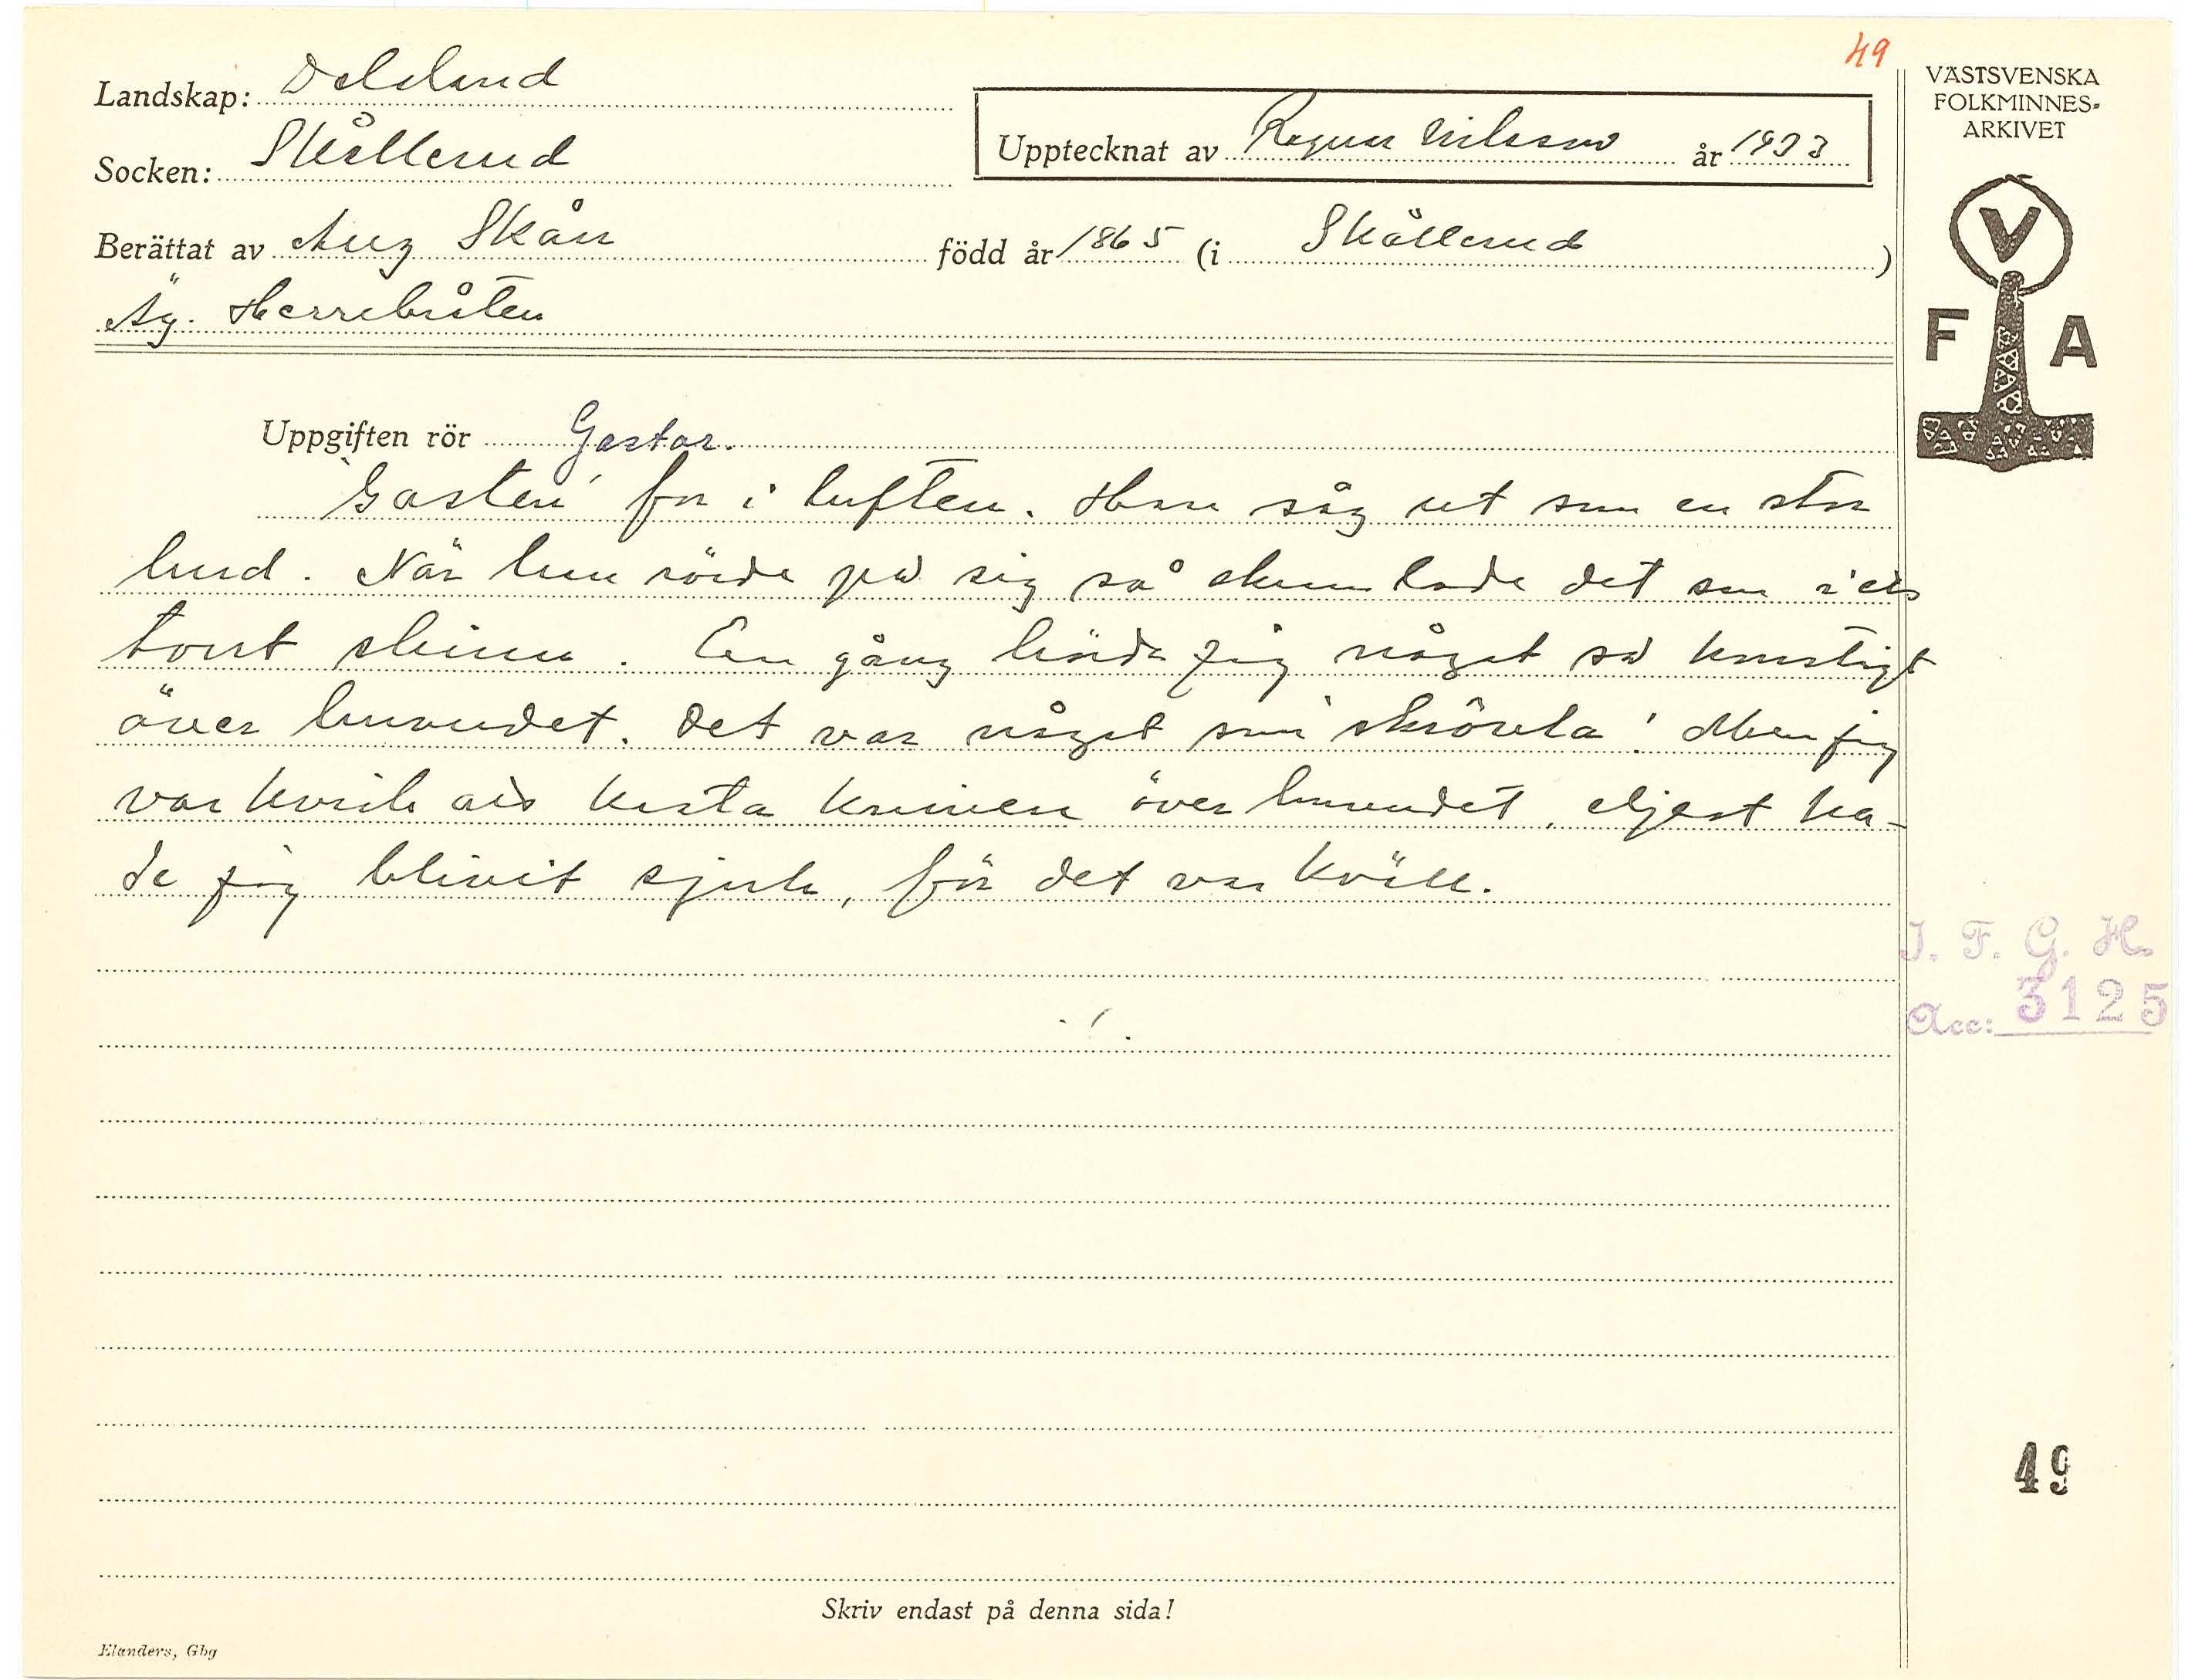 49
Landskap: Dalsland
Socken: Skållerud
Upptecknat av Ragnar Nilsson år 1933
Berättat av Aug Skån född år 1865 (i Skållerud)
Äg. Herrebråten
VÄSTSVENSKA
FOLKMINNES-
ARKIVET
V
F A
Uppgiften rör Gastar.
"Gasten" for i luften. Han såg ut som en stor
hud. När han rörde på sig så skramlade det som i ett
torrt skinn. En gång hörde jag något så konstigt
över huvudet. Det var något som "skrövla". Men jag
var kvick att kasta kniven över huvudet, eljest ha-
de jag blivit sjuk, för det var kväll.
I. F. G. H.
Acc: 3125
49
Skriv endast på denna sida!
Elanders, Gbg